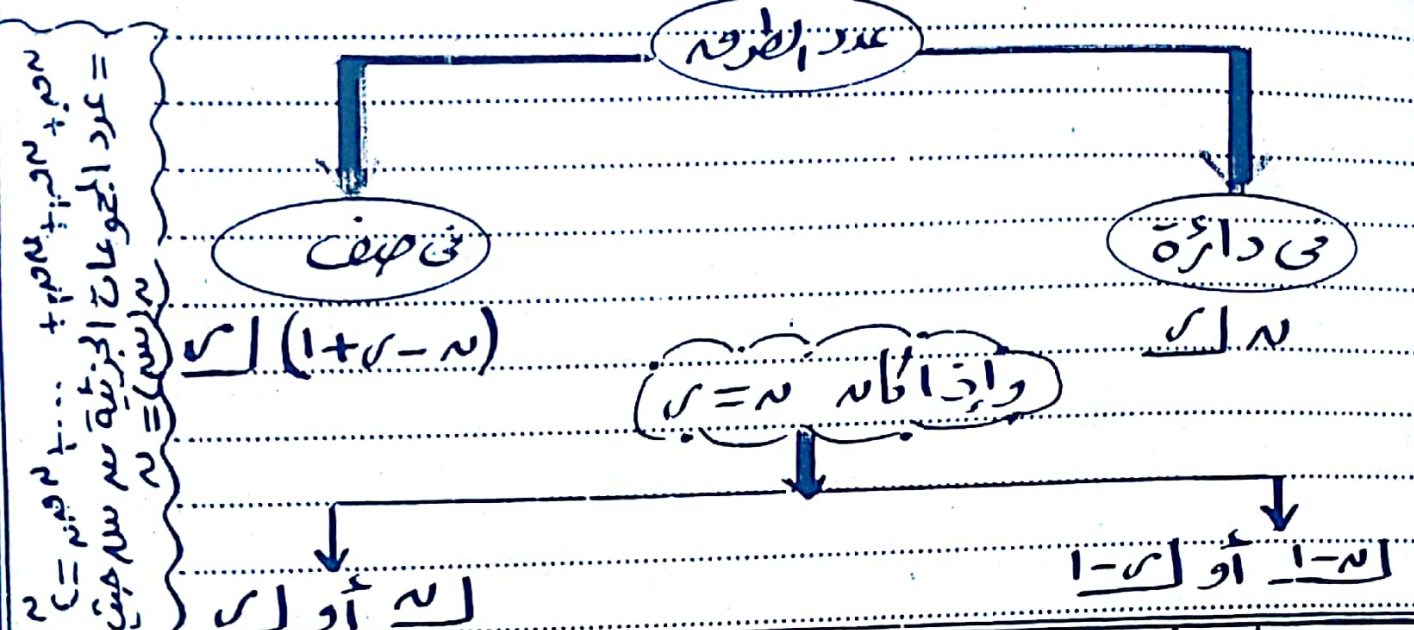 عدد الطرق
فى دائرة
فى صف
ن ⌊ر
(ن - ر + 1) ⌊ر
وإذا كان ن = ر
⌊ن-1 أو ⌊ر-1
⌊ن أو ⌊ر
= عدد المجموعات الجزئية من س حيث
ن(س) = ن